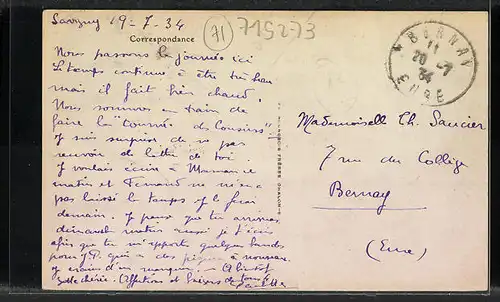 Savigny 19-7-34
71
715273
Correspondance
Nous passons la journée ici
Le temps continue à être très beau
mais il fait bien chaud.
Nous sommes en train de
faire la "tournée des Cousins"!
Je suis surprise de ne pas
recevoir de lettre de toi.
Je voulais écrire à Maman ce
matin et Fernand ne m'en a
pas laissé le temps je le ferai
demain. Je pense que tu arrives
dimanche matin aussi je t'écris
afin que tu m'apportes quelques bandes
pour J.P. qui a des
à nouveau.
Je crains d'en manquer. A bientôt
chérie. Affections et baisers de tous
BERNAY
11
20 -7
34
EURE
Mademoiselle Ch. Saucier
7 rue du Collège
Bernay
(Eure)